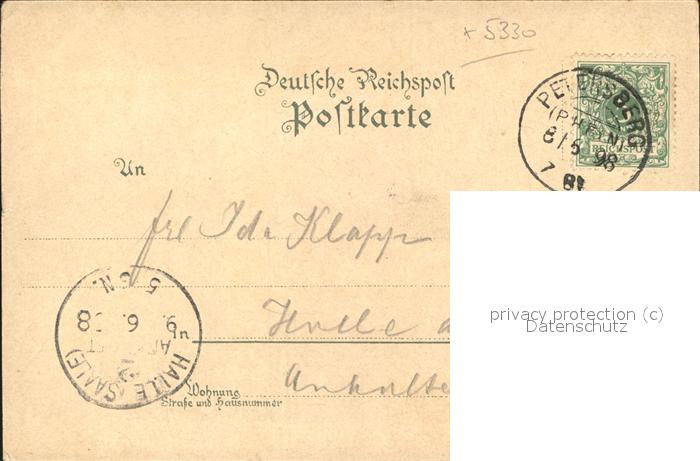 × 5330
Deutsche Reichspost
Postkarte
PETERSBERG
8/6 98
REICHSPOST
An
frl Ida Klapp
privacy protection (c)
Datenschutz
5-6 N.
9. 6. 98
HALLE (SAALE)
in
Halle a
Wohnung
Straße und Hausnummer
Anhalte